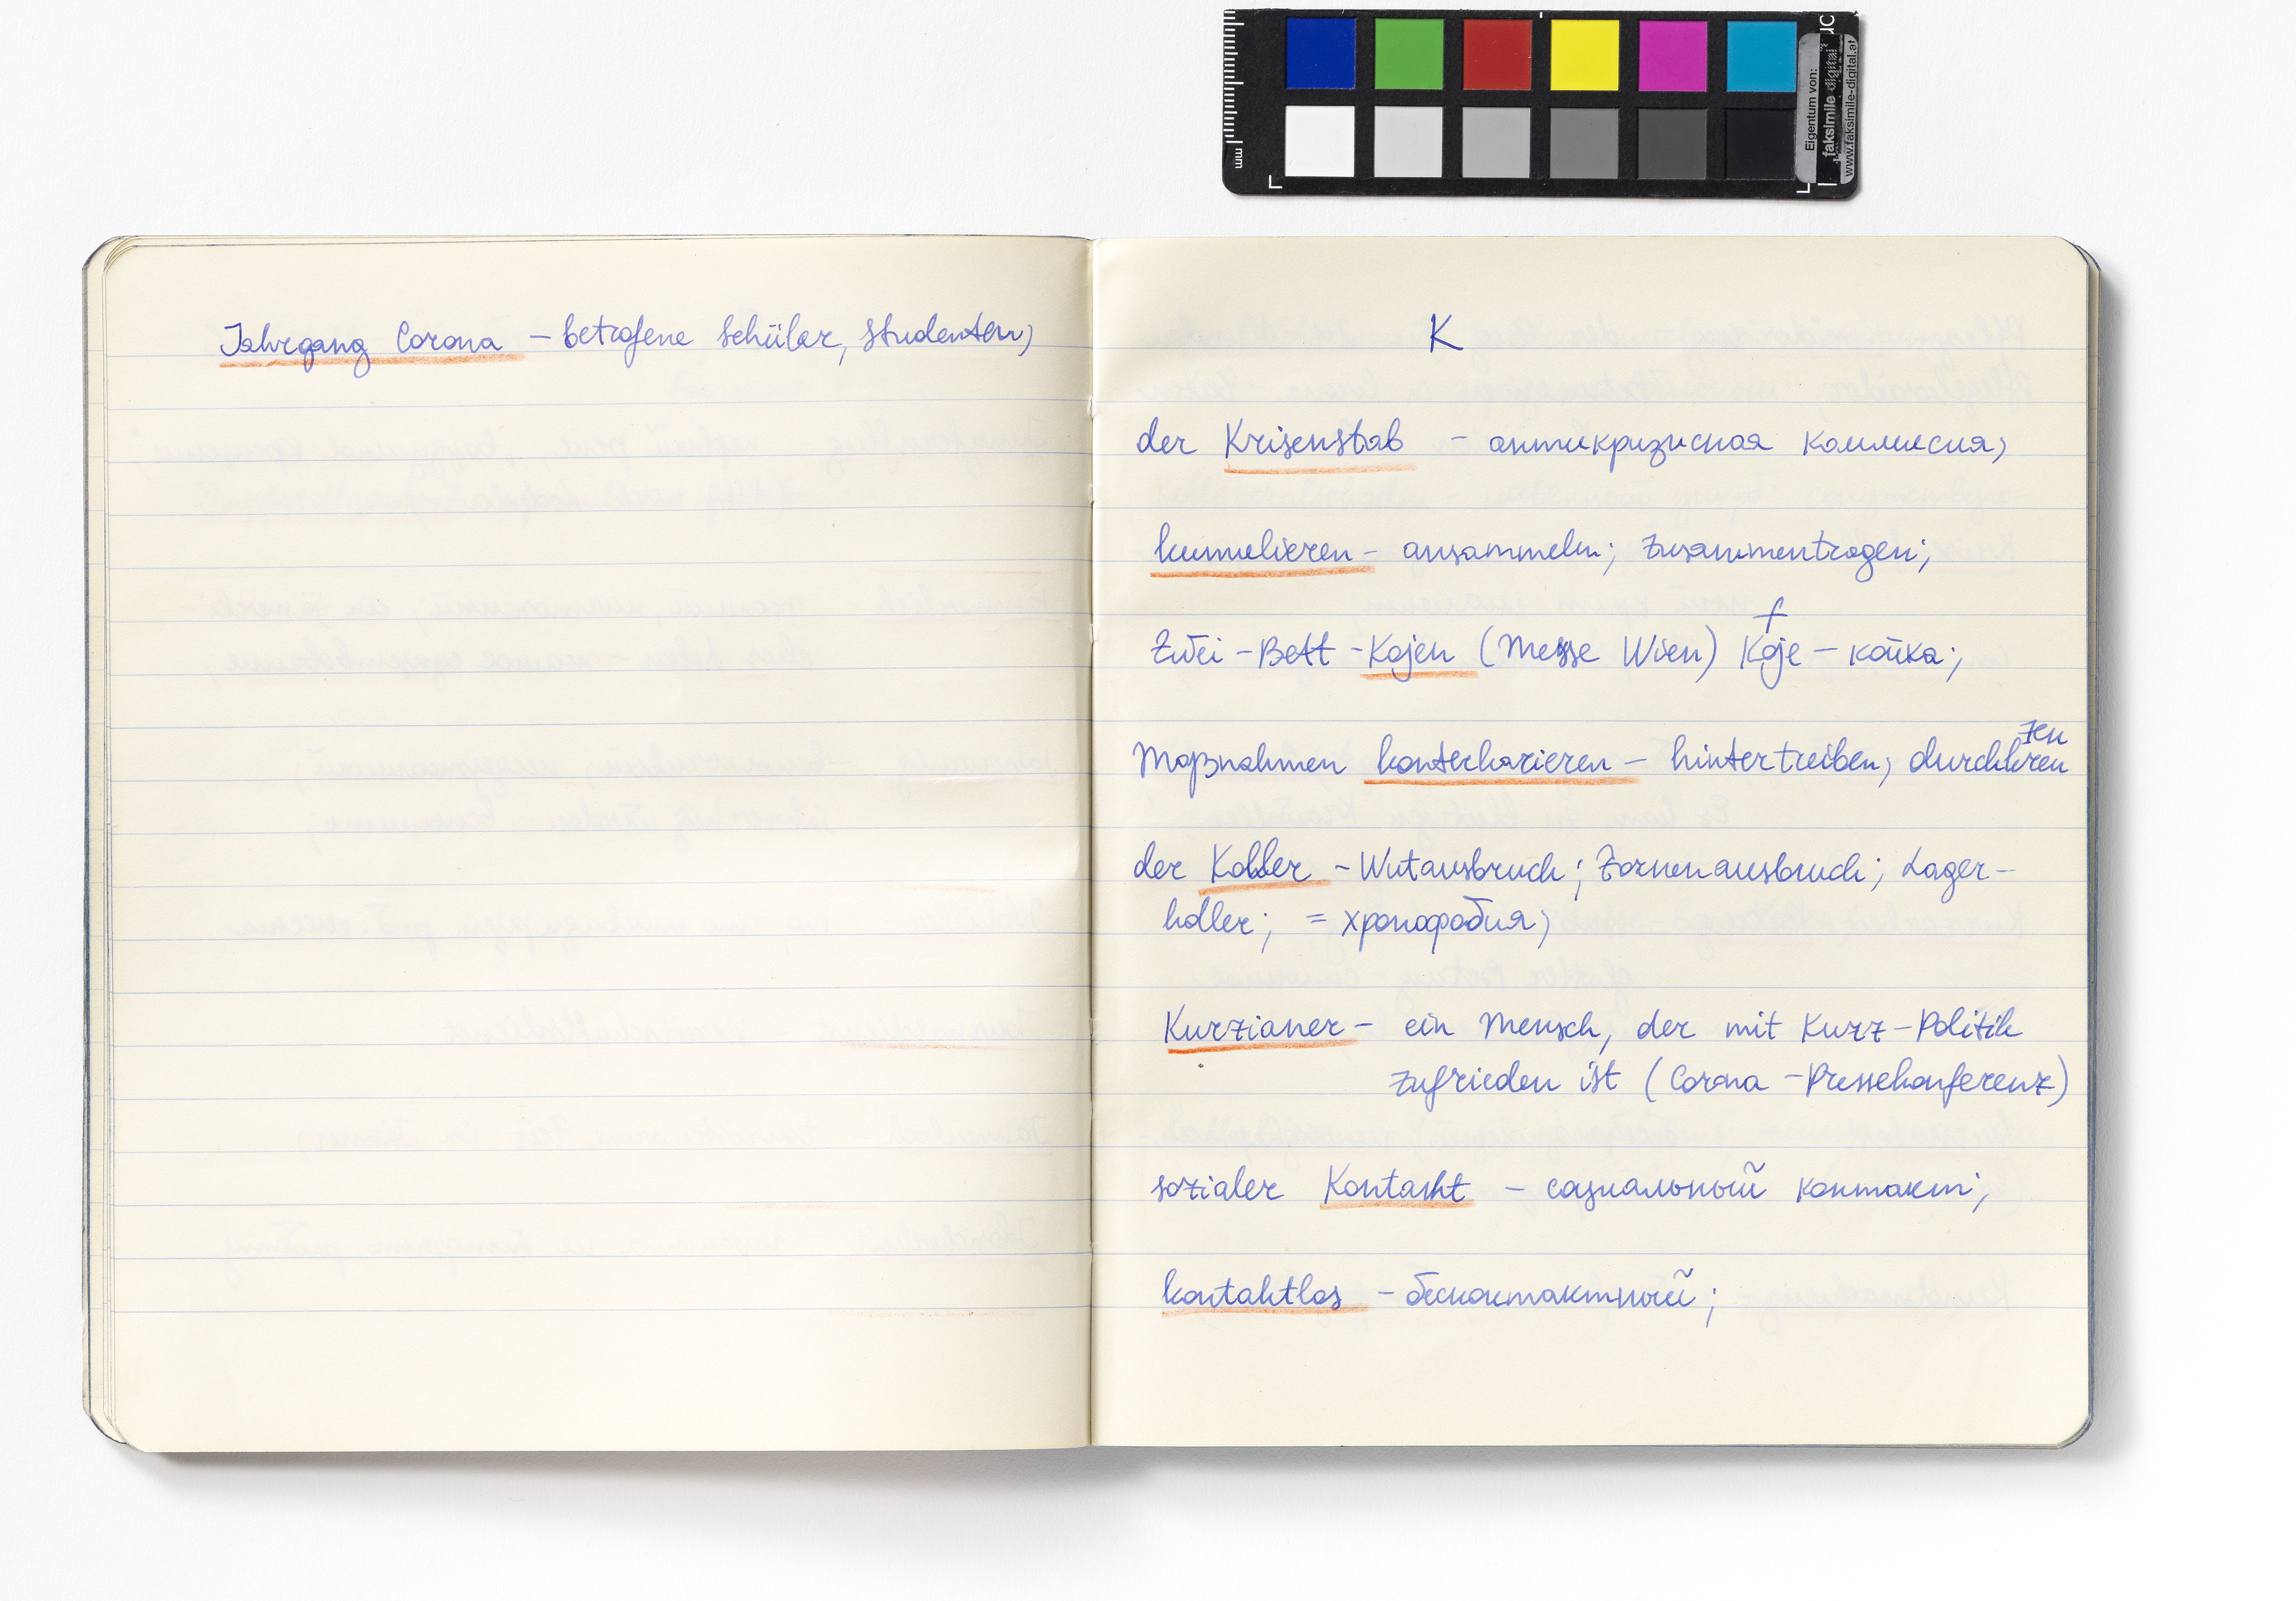 Jahrgang Corona – betrofene Schüler, Studenten;
K
der Krisenstab – антикризисная коммисия;
kumulieren – ansammeln; zusammentragen;
Zwei-Bett-Kojen (Messe Wien) Koje f – койка;
Maßnahmen konterkarieren – hintertreiben;
der Koller – Wutausbruch; Zornenausbruch; Lager-
koller; = хронофобия;
Kurzianer – ein Mensch, der mit Kurz-Politik
zufrieden ist (Corona-Pressekonferenz)
sozialer Kontakt – социальный контакт;
kontaktlos – бесконтактный;
Eigentum von:
faksimile digital
www.faksimile-digital.at
mm